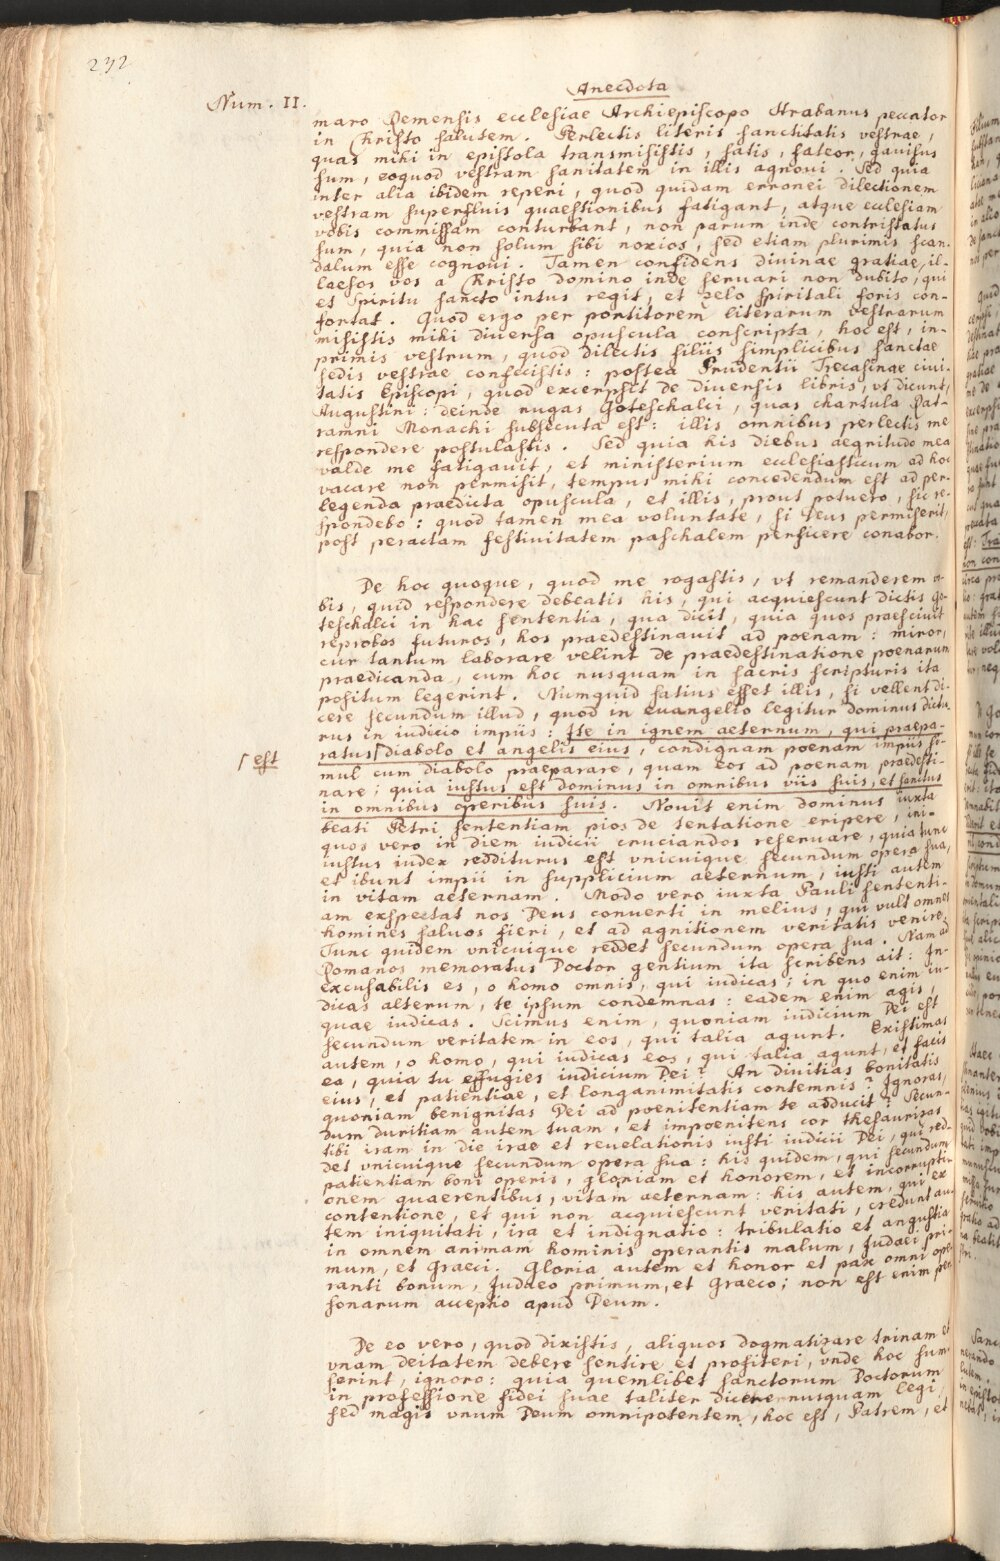 232
Anecdota
Num. II.
maro Remensis ecclesiae Archiepiscopo Hrabanus peccator
in Christo salutem. Perlectis literis sanctitatis vestrae,
quas mihi in epistola transmisistis, satis, fateor, gauisus
sum, eoquod vestram sanitatem in illis agnoui. Sed quia
inter alia ibidem reperi, quod quidam erronei dilectionem
vestram superfluis quaestionibus fatigant, atque ecclesiam
vobis commissam conturbant, non parum inde contristatus
sum, quia non solum sibi noxios, sed etiam plurimis scan-
dalum esse cognoui. Tamen confidens diuinae gratiae, il-
laesos vos a Christo domino inde seruari non dubito, qui
et Spiritu sancto intus regit, et zelo spiritali foris con-
fortat. Quod ergo per portitorem literarum vestrarum
misistis mihi diuersa opuscula conscripta, hoc est, in-
primis vestrum, quod dilectis filiis simplicibus sanctae
sedis vestrae confecistis: postea Prudentii Trecasinae ciui-
tatis Episcopi, quod excerpsit de diuersis libris, vt dicunt,
Augustini: deinde nugas Goteschalci, quas chartula Rat-
ramni Monachi subsecuta est: illis omnibus perlectis me
respondere postulastis. Sed quia his diebus aegritudo mea
valde me fatigauit, et ministerium ecclesiasticum ad hoc
vacare non permisit, tempus mihi concedendum est ad per-
legenda praedicta opuscula, et illis, prout potuero, sic re-
spondebo: quod tamen mea voluntate, si Deus permiserit,
post peractam festiuitatem paschalem perficere conabor.
De hoc quoque, quod me rogastis, vt remanderem vo-
bis, quid respondere debeatis his, qui acquiescunt dictis Go-
teschalci in hac sententia, qua dicit, quia quos praesciuit
reprobos futuros, hos praedestinauit ad poenam: miror,
cur tantum laborare velint de praedestinatione poenarum
praedicanda, cum hoc nusquam in sacris scripturis ita
positum legerint. Numquid satius esset illis, si vellent di-
cere secundum illud, quod in euangelio legitur dominus dictu-
rus in iudicio impiis: Ite in ignem aeternum, qui praepa-
ratus ⌈ diabolo et angelis eius, condignam poenam impiis si-
⌈ est
mul cum diabolo praeparare, quam eos ad poenam praedesti-
nare; quia iustus est dominus in omnibus viis suis, et sanctus
in omnibus operibus suis. Nouit enim dominus iuxta
beati Petri sententiam pios de tentatione eripere, ini-
quos vero in diem iudicii cruciandos reseruare, quia tunc
iustus iudex redditurus est vnicuique secundum opera sua,
et ibunt impii in supplicium aeternum, iusti autem
in vitam aeternam. Modo vero iuxta Pauli sententi-
am exspectat nos Deus conuerti in melius, qui vult omnes
homines saluos fieri, et ad agnitionem veritatis venire.
Tunc quidem vnicuique reddet secundum opera sua. Nam ad
Romanos memoratus Doctor gentium ita scribens ait: In-
excusabilis es, o homo omnis, qui iudicas; in quo enim iu-
dicas alterum, te ipsum condemnas: eadem enim agis,
quae iudicas. Scimus enim, quoniam iudicium Dei est
secundum veritatem in eos, qui talia agunt. Existimas
autem, o homo, qui iudicas eos, qui talia agunt, et facis
ea, quia tu effugies iudicium Dei? An diuitias bonitatis
eius, et patientiae, et longanimitatis contemnis? Ignoras,
quoniam benignitas Dei ad poenitentiam te adducit? Secun-
dum duritiam autem tuam, et impoenitens cor thesaurizas
tibi iram in die irae et reuelationis iusti iudicii Dei, qui red-
det vnicuique secundum opera sua: his quidem, qui secundum
patientiam boni operis, gloriam et honorem, et incorrupti-
onem quaerentibus, vitam aeternam: his autem, qui ex
contentione, et qui non acquiescunt veritati, credunt au-
tem iniquitati, ira et indignatio: tribulatio et angustia
in omnem animam hominis operantis malum, Judaei pri-
mum, et Graeci. Gloria autem et honor et pax omni ope-
ranti bonum, Judaeo primum, et Graeco; non est enim per-
sonarum acceptio apud Deum.
De eo vero, quod dixistis, aliquos dogmatizare trinam et
vnam deitatem debere sentire et profiteri, vnde hoc sum-
serint, ignoro: quia quemlibet sanctorum Doctorum
in professione fidei suae taliter dicere nusquam legi,
sed magis vnum Deum omnipotentem, hoc est, Patrem, et